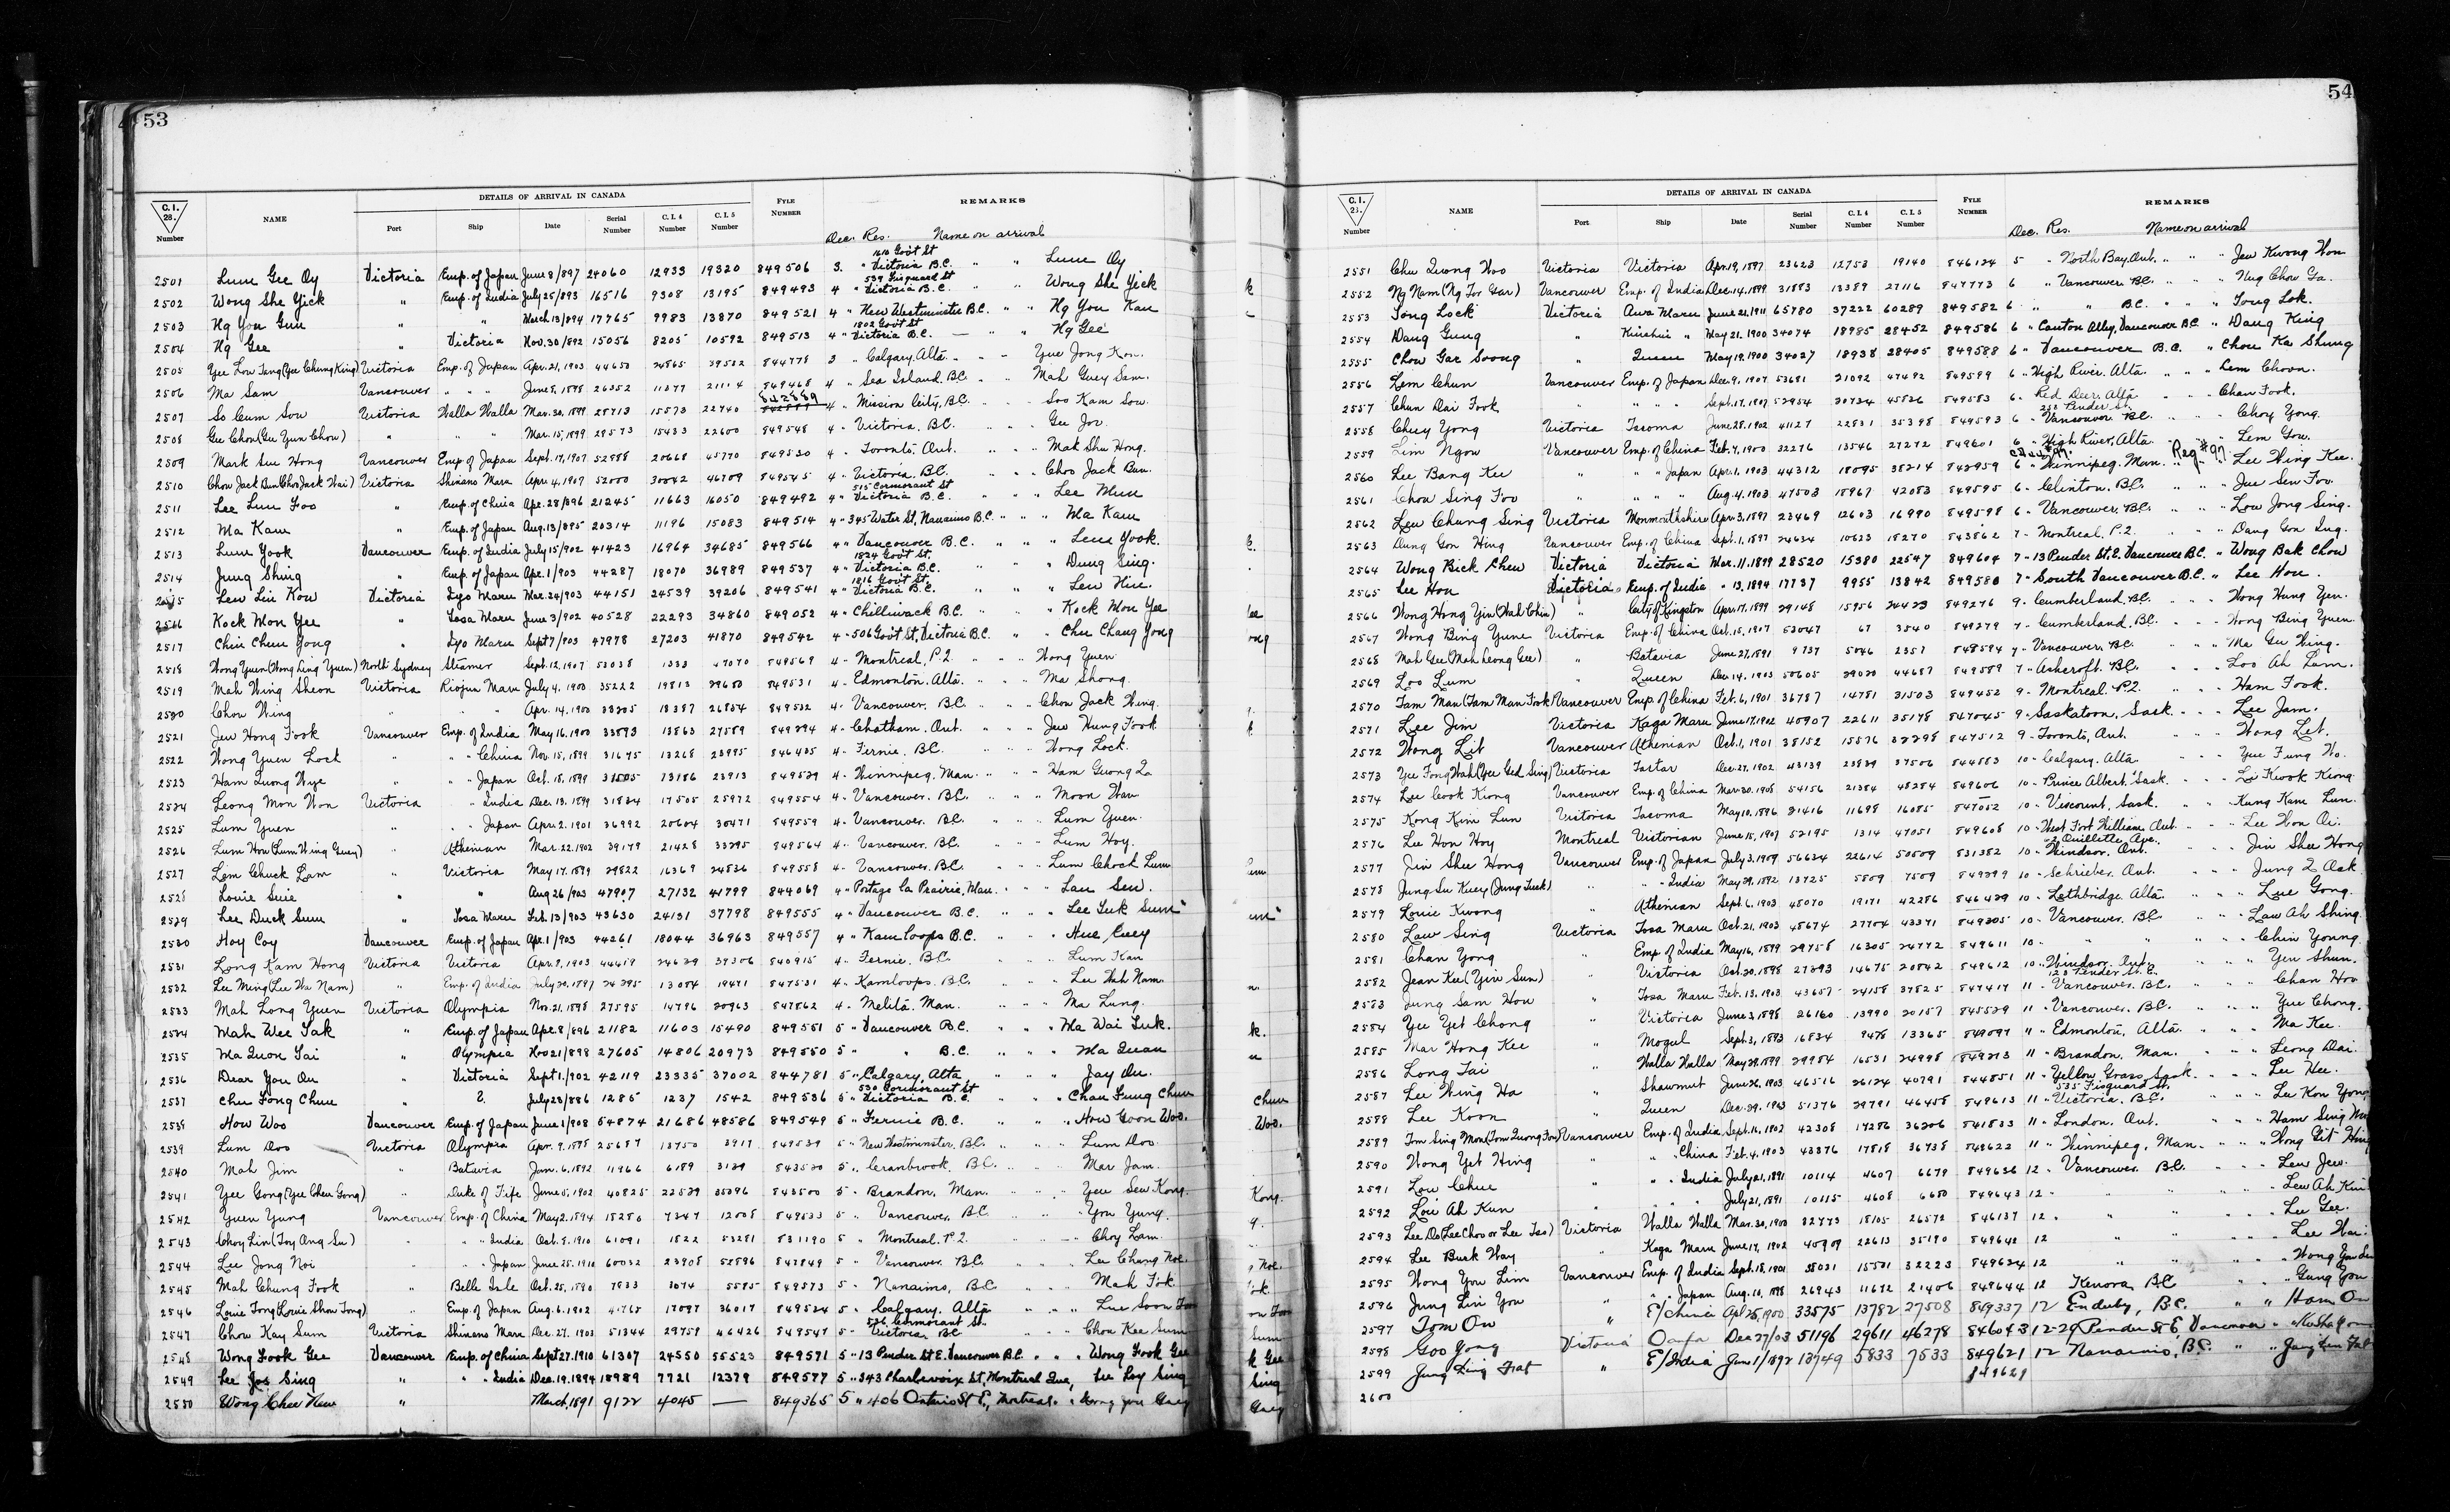 53
DETAILS OF ARRIVAL IN CANADA
C.I. 28. Number NAME Port Ship Date Serial Number C.I.4 Number C.I.5 Number FYLE NUMBER REMARKS
Dec. Res. Name on arrival
1610 Gov't St
2501 Lum Gee Oy Victoria Emp. of Japan June 8/897 24060 12933 19320 849506 3. " Victoria B.C. " " Lum Oy
539 Fisguard St
2502 Wong She Yick " Emp. of India July 25/893 16516 9308 13195 849493 4 " Victoria B.C. " Wong She Yick
2503 Ng You Gun " " March 13/894 17765 9983 13870 849521 4 " New Westminster B.C. " " Ng You Kan
1802 Gov't St
2504 Ng Gee " Victoria Nov. 30/892 15056 8205 10592 849513 4 " Victoria B.C. — " " Ng Gee
2505 Yee Low Tang (Yee Chung King) Victoria Emp. of Japan Apr. 21, 1903 44650 24865 39532 844778 3 " Calgary, Alta. " " Yue Jong Kon.
2506 Ma Sam Vancouver " " " June 8, 1898 26352 849468 4 " Sea Island, B.C. " " Mah Guey Sam.
2507 So Cum Sou Victoria Walla Walla Mar. 30, 1899 28713 15573 22740 842889 4 " Mission City, B.C. Soo Kam Sow.
2508 Gee Chou (Gee Yun Chow) " " " Mar. 15, 1899 28573 15433 22600 849548 4 " Victoria, B.C. Gee Jor.
2509 Mark Sue Hong Vancouver Emp. of Japan Sept. 17, 1907 52988 20668 45770 849530 4 " Toronto, Ont. " " Mak Shu Hong.
2510 Chou Jack Bun (Choo Jack Wai) Victoria Shinano Maru Apr. 4, 1907 52000 30042 46709 849545 4 " Victoria, B.C. " " Choo Jack Bun.
515 Cormorant St
2511 Lee Lun Foo " Emp. of China Apr. 28/896 21245 11663 16050 849492 4 " Victoria B.C. " " Lee Mun
2512 Ma Kam " Emp. of Japan Aug. 13/895 20314 11196 15083 849514 4 " 345 Water St, Nanaimo B.C. " " " Ma Kam
2513 Lum Yook Vancouver Emp. of India July 15/902 41423 16964 34685 849566 4 " Vancouver B.C. " " " Lum Yook.
1824 Gov't St.
2514 Jung Shing " Emp. of Japan Apr. 1/903 44287 18070 36989 849537 4 " Victoria B.C. " " Dung Sing.
1816 Gov't St.
2515 Lew Lin Kow Victoria Iyo Maru Mar. 24/903 44151 24539 39206 849541 4 " Victoria B.C. " " Leu Niu.
2516 Kock Mon Yee " Tosa Maru June 3/902 40528 22293 34860 849052 4 " Chilliwack B.C. " " Kock Mon Yee
2517 Chin Chun Jong " Iyo Maru Sept 7/903 47978 27203 41870 849542 4 " 506 Gov't St, Victoria B.C. " " Chu Chang Jong
2518 Wong Yuen (Wong Ling Yuen) North Sydney Steamer Sept. 12, 1907 53038 1333 47070 849569 4 " Montreal, P.Q. " " Wong Yuen
2519 Mah Wing Sheon Victoria Riojun Maru July 4, 1900 35222 19813 29680 849531 4 " Edmonton, Alta. " " Ma Shong.
2520 Chou Wing " " " Apr. 14, 1900 26854 849532 4 " Vancouver, B.C. " " Chou Jack Wing.
2521 Jew Hong Fook Vancouver Emp. of India May 16, 1900 33893 13863 27589 849294 4 " Chatham, Ont. " " Jew Hung Fook.
2522 Wong Yuen Lock " " China Nov. 15, 1899 31675 13268 23995 846405 4 " Fernie, B.C. " " Wong Lock.
2523 Ham Quong Wye " " Japan Oct. 18, 1899 31505 13186 23913 849529 4 " Winnipeg, Man. " " Ham Guong Za
2524 Leong Mon Won Victoria " India Dec. 13, 1899 31834 17505 25972 849554 4 " Vancouver, B.C. " " Moon Wan
2525 Lum Yuen " " Japan Apr. 2, 1901 36992 20604 30471 849559 4 " Vancouver, B.C. " " Lum Yuen.
2526 Lum How (Lum Wing Guey) " Athenian Mar. 22, 1902 39179 21428 33295 849564 4 " Vancouver, B.C. " " Lum Hoy.
2527 Lem Chuck Lam " Victoria May 17, 1899 29822 16369 24836 849558 4 " Vancouver, B.C. " " Lum Chock Lum
2528 Louie Suie " " Aug 26/903 47907 27132 41799 844069 4 " Portage la Prairie, Man. " " Lau Seu.
2529 Lee Duck Sum " Tosa Maru Feb. 13/903 43630 24131 37798 849555 4 " Vancouver B.C. " " " Lee Tuk Sum
2530 Hoy Coy Vancouver Emp. of Japan Apr. 1/903 44261 18044 36963 849557 4 " Kamloops B.C. " Hue Cuey
2531 Long Kam Hong Victoria Victoria Apr. 9, 1903 44419 24639 39306 840915 4 " Fernie, B.C. " " Lum Kan
2532 Lee Ming (Lee Wa Nam) " Emp. of India July 20, 1897 24295 13084 19471 847531 4 " Kamloops, B.C. " " Lee Wah Nam.
2533 Mah Long Yuen Victoria Olympia Nov. 21, 1898 27595 14796 20963 847862 4 " Melita, Man. " " Ma Lung.
2534 Mah Wee Tak " Emp. of Japan Apr. 8/896 21182 11603 15490 849551 5 " Vancouver B.C. " " Ma Wai Tuk.
2535 Ma Quon Tai " Olympia Nov 21/898 27605 14806 20973 849550 5 " " B.C. " " Ma Quan
2536 Dear You On " Victoria Sept 1/902 42119 23335 37002 844781 5 " Calgary, Alta " " Jay On.
530 Cormorant St
2537 Chu Fong Chun " 2. July 23/886 1285 1237 1542 849536 5 " Victoria B.C. " " Chan Fung Chun
2538 How Woo Vancouver Emp. of Japan June 1/908 54874 21686 48586 849549 5 " Fernie B.C. " " How Goon Woo.
2539 Lum Doo Victoria Olympia Apr. 9, 1898 25687 13750 3917 849539 5 " New Westminster, B.C. " " Lum Doo
2540 Mah Jim " Batavia Jan. 6, 1892 11966 6189 3139 843530 5 " Cranbrook, B.C. " " Mar Jam.
2541 Yee Gong (Yee Chew Gong) " Duke of Fife June 5, 1902 40825 22539 35096 843500 5 " Brandon, Man. " " Yee Sew Kong.
2542 Yuen Yung Vancouver Emp. of China May 2, 1894 18280 7347 12008 849533 5 " Vancouver, B.C. " You Yung.
2543 Choy Lin (Toy Ang Su) " " India Oct. 8, 1910 61091 1822 53281 831190 5 " Montreal, P.Q. " Choy Lam.
2544 Lee Jong Noi " " Japan June 25, 1910 60032 23908 52596 847849 5 " Vancouver, B.C. " " Lee Chung Noi.
2545 Mah Chung Fook " Belle Isle Oct. 25, 1890 7833 3074 5585 849573 5 " Nanaimo, B.C. " " Mah Fok.
2546 Louie Tong (Louie Shou Tong) " Emp. of Japan Aug. 6, 1902 41765 17097 36017 849524 5 " Calgary, Alta " " Lue Soon Foon
526 Cormorant St.
2547 Chow Kay Sum Victoria Shinano Maru Dec. 27, 1903 51344 29759 46426 849547 5 " Victoria, B.C. " " Chou Kee Sum
2548 Wong Fook Gee Vancouver Emp. of China Sept 27, 1910 61307 24550 55523 849571 5 " 13 Pender St E. Vancouver B.C. " " Wong Fook Gee
2549 Lee Jos Sing " " India Dec. 19, 1894 18989 7721 12379 849577 5 " 343 Charlevoix St, Montreal Que, Lee Loy Sing
2550 Wong Chee New " March, 1891 9122 4045 — 849365 5 " 406 Ontario St E, Montreal.
54
DETAILS OF ARRIVAL IN CANADA
C.I. 28. Number NAME Port Ship Date Serial Number C.I.4 Number C.I.5 Number FYLE NUMBER REMARKS
Dec. Res. Name on arrival
2551 Chu Quong Woo Victoria Victoria Apr. 19, 1897 23623 12753 19140 846124 5 " North Bay, Ont. " " Jew Kwong Won
2552 Ng Nam (Ng For Gar) Vancouver Emp. of India Dec. 14, 1899 31883 13389 27116 847773 6 " Vancouver B.C. " " Nug Chow Ga.
2553 Tong Lock Victoria Awa Maru June 21, 1911 65780 37222 60289 849582 6 " " B.C. " " Tong Lok.
2554 Dang Gung " Kinshiu " May 21, 1900 34074 18985 28452 849586 6 " Canton Alley, Vancouver B.C. " Dang King
2555 Chow Gar Soong " Queen May 19, 1900 34027 18938 28405 849588 6 " Vancouver B.C. " Chou Ka Shung
2556 Lem Chun Vancouver Emp. of Japan Dec. 9, 1907 53681 21092 47492 849599 6 " High River, Alta. " " Lem Choon.
2557 Chun Dai Fook " " " Sept. 17, 1907 52954 20734 45836 849583 6 " Red Deer, Alta " " Chan Fook.
Pender St.
2558 Chuy Yong Victoria Tacoma June 28, 1902 41127 22831 35398 849593 6 " Vancouver B.C. " " Choy Yong.
2559 Lim Ngow Vancouver Emp. of China Feb. 4, 1900 32276 13546 27272 849601 6 " High River, Alta. " " Lem Gow.
Reg #97
2560 Lee Bang Kee " " " Japan Apr. 1, 1903 44312 18095 38214 842959 6 " Winnipeg, Man. " " Lee Wing Kee.
2561 Chou Sing Foo " " " Aug. 4, 1903 47503 18967 42083 849595 6 " Clinton, B.C. " " Jue Sen Foo
2562 Lew Chung Sing Victoria Monmouthshire Apr. 3, 1897 23469 12603 16990 849598 6 " Vancouver, B.C. " " Low Jong Sing.
2563 Dung Gon Hing Vancouver Emp. of China Sept. 1, 1897 24634 10623 18270 843862 7 " Montreal, P.Q. " " Dang Gon Ing.
2564 Wong Bick Chew Victoria Victoria Mar. 11, 1899 28520 15380 22547 849604 7 " 13 Pender St, E. Vancouver B.C. " Wong Bak Chow
2565 Lee Hou Victoria Emp. of India " 13, 1894 17737 9955 13842 849580 7 " South Vancouver B.C. " Lee Hou.
2566 Wong Hong Yin (Wah Chin) " City of Kingston Apr. 17, 1899 29148 15956 24423 849276 9 " Cumberland, B.C. " " Wong Hung Yen.
2567 Wong Bing Yune Victoria Emp. of China Oct. 15, 1907 53047 67 3540 849279 7 " Cumberland, B.C. " " Wong Bing Yuen
2568 Mah Gee (Mah Leong Gee) " Batavia June 27, 1891 9737 5046 2357 848594 7 " Vancouver, B.C. " " Ma Gee Wing.
2569 Loo Lum " Queen Dec. 14, 1903 50605 29020 44687 849589 7 " Ashcroft, B.C. " " Loo Ah Lam.
2570 Tam Man (Tam Man Fook) Vancouver Emp. of China Feb. 6, 1901 36787 14781 31503 849452 9 " Montreal, P.Q. " " Ham Fook.
2571 Lee Jim Victoria Kaga Maru June 17, 1902 40907 22611 35178 847045 9 " Saskatoon, Sask. " " Lee Jam.
2572 Wong Lit Vancouver Athenian Oct. 1, 1901 38152 15576 32298 847512 9 " Toronto, Ont. " " Wong Let.
2573 Yee Fong Wah (Yee Ged Sing) Victoria Tartar Dec. 27, 1902 43139 23839 37506 844883 10 " Calgary, Alta " " Yue Fung Wo.
2574 Lee Cook Kiong Vancouver Emp. of China Mar. 30, 1908 54156 21384 48284 849606 10 " Prince Albert, Sask. " " Loi Kwok Kiong
2575 Kong Kim Lun Victoria Tacoma May 10, 1896 21416 11698 16085 847052 10 " Viscount, Sask. " " Kung Kam Lun.
2576 Lee Hon Hoy Montreal Victorian June 15, 1907 52195 1314 47051 849608 10 " West Fort William, Ont. " " Lee Hon Oi.
22 Ouillette Ave.
2577 Jin Shee Hong Vancouver Emp. of Japan July 3, 1909 56634 22614 50509 831382 10 " Windsor, Ont. " " Jin Shee Hong
2578 Jung Su Kuey (Jung Tuck) " " India May 29, 1892 13725 5809 7509 849299 10 " Schrieber, Ont. " " Jung Q Ock
2579 Louie Kwong Athenian Sept. 6, 1903 48070 19171 42286 846429 10 " Lethbridge, Alta. " " Lue Gong.
2580 Law Sing Victoria Tosa Maru Oct. 21, 1903 48674 27704 43371 849305 10 " Vancouver, B.C. " " Law Ah Shing
2581 Chan Yong " Emp. of India May 16, 1899 29758 16305 24772 849611 10 " " " Chin Young
2582 Jean Kee (Yin Sun) " Victoria Oct. 20, 1898 27293 14675 20842 849612 10 " Windsor, Ont. " " Yen Shun.
123 Pender St. E.
2583 Jung Sam How " Tosa Maru Feb. 13, 1903 43657 24158 37825 847417 11 " Vancouver, B.C. " " Chan Hoo
2584 Yee Yet Chong " Victoria June 3, 1898 26160 13990 20157 845529 11 " Vancouver, B.C. " " Yue Chong.
2585 Mar Hong Kee " Mogul Sept. 3, 1893 16834 9478 13365 849097 11 " Edmonton, Alta. " " Ma Kee.
2586 Long Tai " Walla Walla May 29, 1899 29984 16531 24998 849213 11 " Brandon, Man. " " Leong Dai.
2587 Lee Wing Ha " Shawmut June 26, 1903 46516 26124 40791 844851 11 " Yellow Grass, Sask. " " Lee Hee.
535 Fisguard St.
2588 Lee Koon " Queen Dec. 29, 1903 51376 29791 46458 849613 11 " Victoria, B.C. " " Lee Kon Yong
2589 Tom Sing Mon (Tom Quong Foo) Vancouver Emp. of India Sept. 16, 1902 42308 17286 36206 841833 11 " London, Ont. " " Ham Sing
2590 Wong Yet Hing " " China Feb. 4, 1903 43376 17818 36738 849622 11 " Winnipeg, Man. " " Wong Git Hing
2591 Low Chue " " India July 21, 1891 10114 4607 6679 849636 12 " Vancouver, B.C. " " Lew Jew.
2592 Loui Ah Kun " " July 21, 1891 10115 4608 6680 849643 12 " " " Lew Ah Kin
2593 Lee Do (Lee Choo or Lee Tso) Victoria Walla Walla Mar. 30, 1900 32773 18105 26572 846137 12 " " " Lee Gee.
2594 Lee Buck Way " Kaga Maru June 17, 1902 40909 22613 35180 849642 12 " " Lee Wai.
2595 Wong You Lim Vancouver Emp. of India Sept. 18, 1901 38031 15501 32223 849624 12 " " Wong You Lim
2596 Jung Lin You " " Japan Aug. 10, 1898 26943 11672 21406 849644 12 Kenora, B.C. " " Gung You
2597 Tom On " E/China Apr 25, 1900 33575 13782 27508 849337 12 Enderby, B.C. " " Ham On
2598 Goo Yong Victoria Oanfa Dec 27/03 51196 29611 46278 846043 12 - 29 Pender St E, Vancouver
2599 Jung Ling Fat " E/India June 1/1892 13749 5833 7533 849621 12 Nanaimo, B.C.
2600 849621